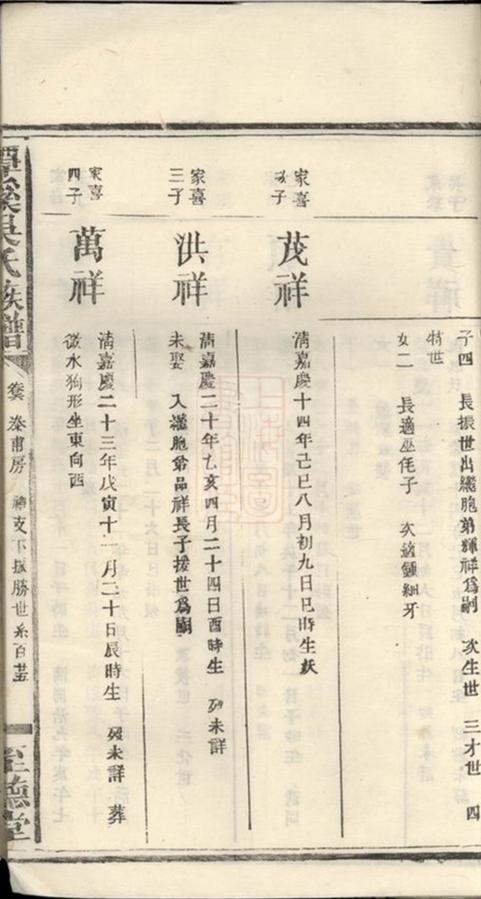 子四 長振世出繼胞弟輝祥爲嗣 次生世 三才世 四
特世
女二 長適巫侂子 次適鍾細牙
家喜
次子
茂祥
清嘉慶十四年己巳八月初九日巳時生妖
家喜
三子
洪祥
清嘉慶二十年乙亥四月二十四日酉時生 歿未詳
未娶 入繼胞弟品祥長子援世爲嗣
家喜
四子
萬祥
清嘉慶二十三年戊寅十一月二十日辰時生 歿未詳 葬
微水狗形坐東向酉
吳氏族譜
卷 泰甫房 勝世系百
至德堂